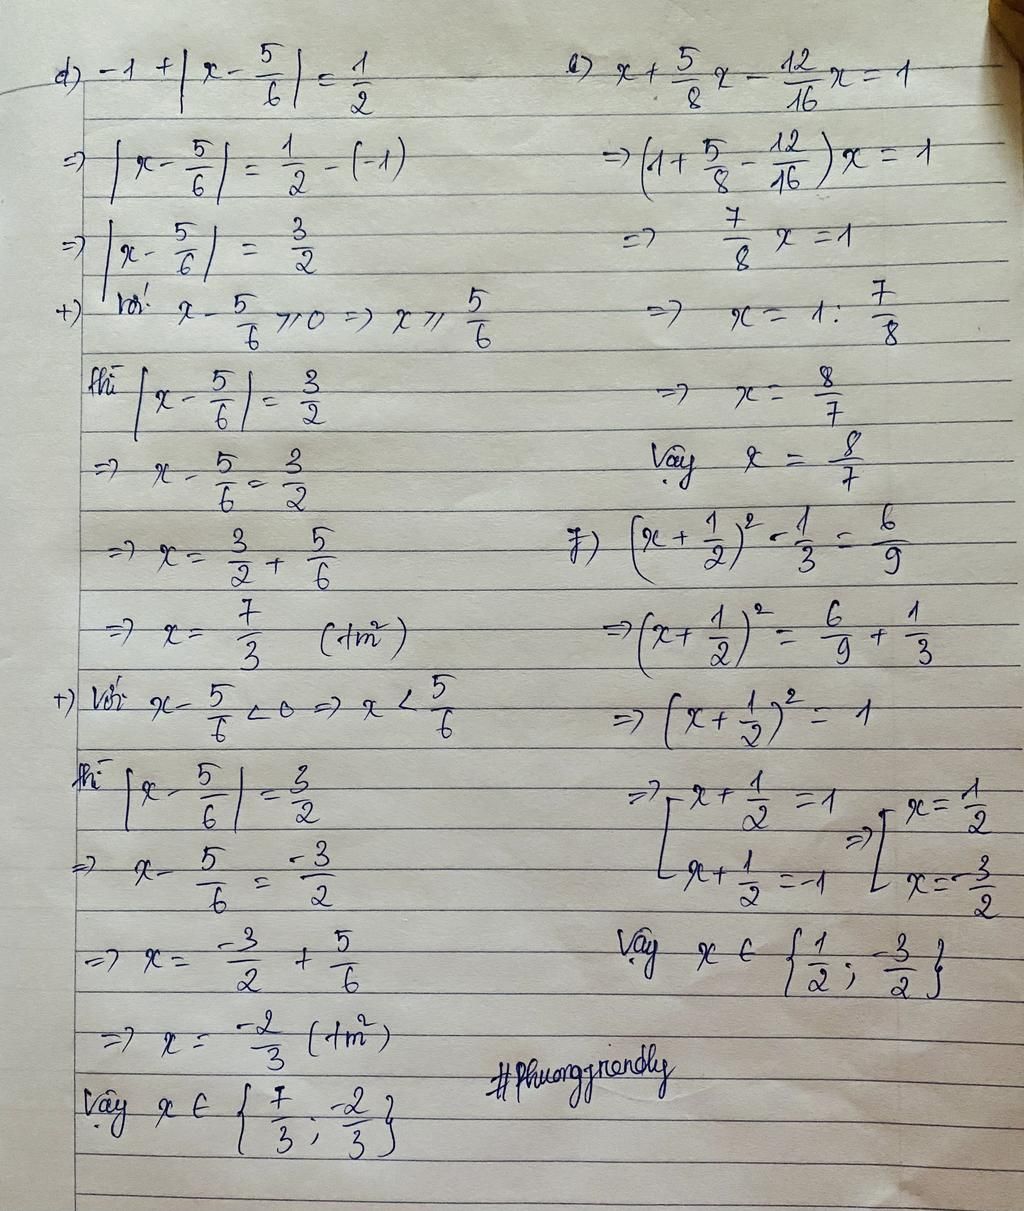 d) -1 + |x - 5/6| = 1/2
=> |x - 5/6| = 1/2 - (-1)
=> |x - 5/6| = 3/2
+) Với x - 5/6 ⩾ 0 => x ⩾ 5/6
thì |x - 5/6| = 3/2
=> x - 5/6 = 3/2
=> x = 3/2 + 5/6
=> x = 7/3 (tm²)
+) Với x - 5/6 < 0 => x < 5/6
thì |x - 5/6| = 3/2
=> x - 5/6 = -3/2
=> x = -3/2 + 5/6
=> x = -2/3 (tm²)
Vậy x ∈ {7/3; -2/3}
e) x + 5/8 x - 12/16 x = 1
=> (1 + 5/8 - 12/16) x = 1
=> 7/8 x = 1
=> x = 1 : 7/8
=> x = 8/7
Vậy x = 8/7
f) (x + 1/2)² - 1/3 = 6/9
=> (x + 1/2)² = 6/9 + 1/3
=> (x + 1/2)² = 1
=> [x + 1/2 = 1 => [x = 1/2
x + 1/2 = -1 x = -3/2
Vậy x ∈ {1/2; -3/2}
#Phuongfriendly